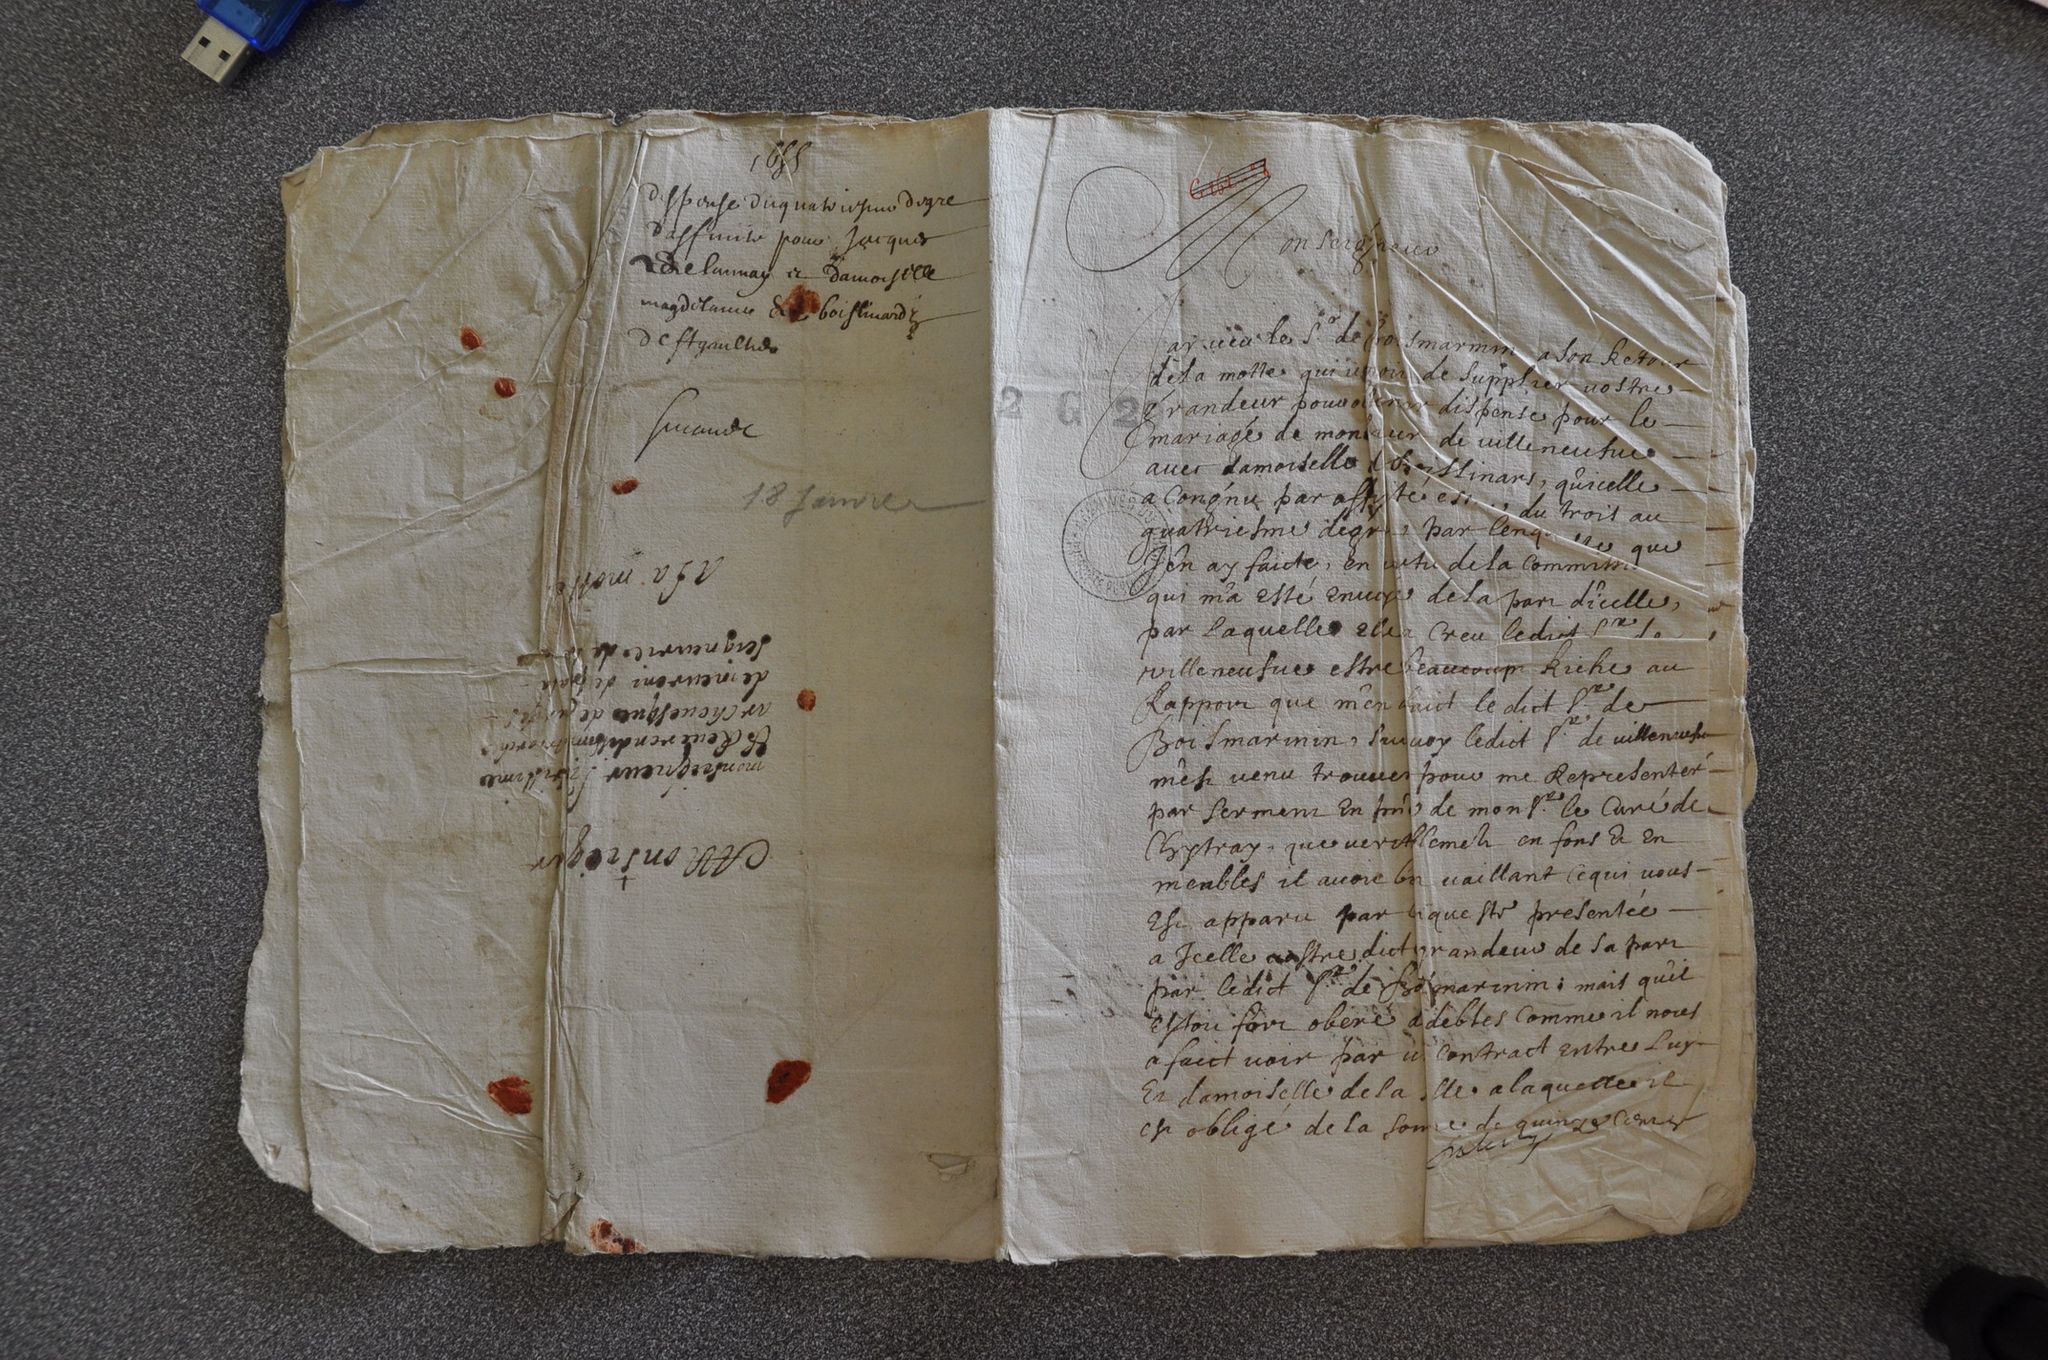 1655
dispense du quatriesme degre
daffinité pour Jacques
delaunay et damoiselle
magdelaine de boislinards
De St gaultier
18 Janvier
A la motte
seigneurie de la
archevesque de
Et Reverendissime
monseigneur Illustrissime
A Monseigneur
Monseigneur
2 G 2
Jay veu le Sr. de Boismarmin a son Retour
de la motte qui venoit de supplier vostre
grandeur pour obtenir dispense pour le
mariage de monsieur de villeneufve
avec damoiselle de Boislinars, qu'icelle
a Congnu par affinité estre du trois au
quatriesme degré, par l'enqueste que
J'en ay faicte, en vertu de la Commission
qui m'a esté envoyée de la part d'icelle,
par laquelle elle a Creu ledict Sr. de
villeneufve estre beaucoup Riche au
Rapport que m'en faict le dict Sr. de
Boismarmin, ledict Sr. de villeneufve
m'est venu trouver pour me Representer
par serment En pnce de monsr. le Curé de
que veritablement en fons et en
meubles il avoit bn vaillant ce qui vous
Est apparu par requeste presentée
a Icelle vostre dict grandeur de la part
par ledict Sr. de Boismarmin: mais qu'il
Estoit fort oberé de debtes Comme il nous
a faict voir par un contract entre Luy
Et damoiselle de la a laquelle il
est obligé de la somme de quinze Cents